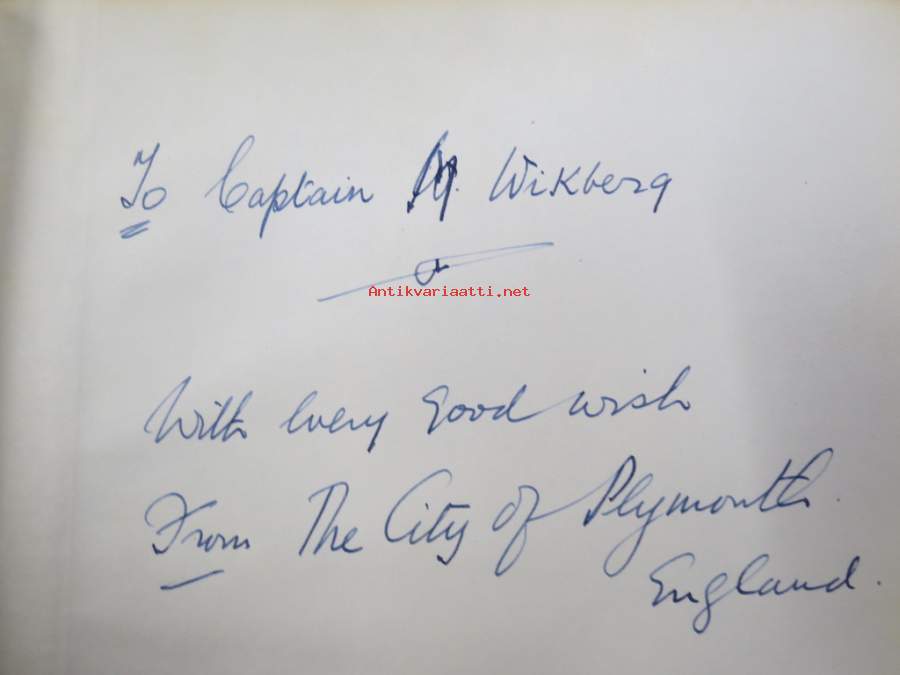 To Captain M. Wikberg
Antikvariaatti.net
With every Good wish
From The City of Plymouth.
England.